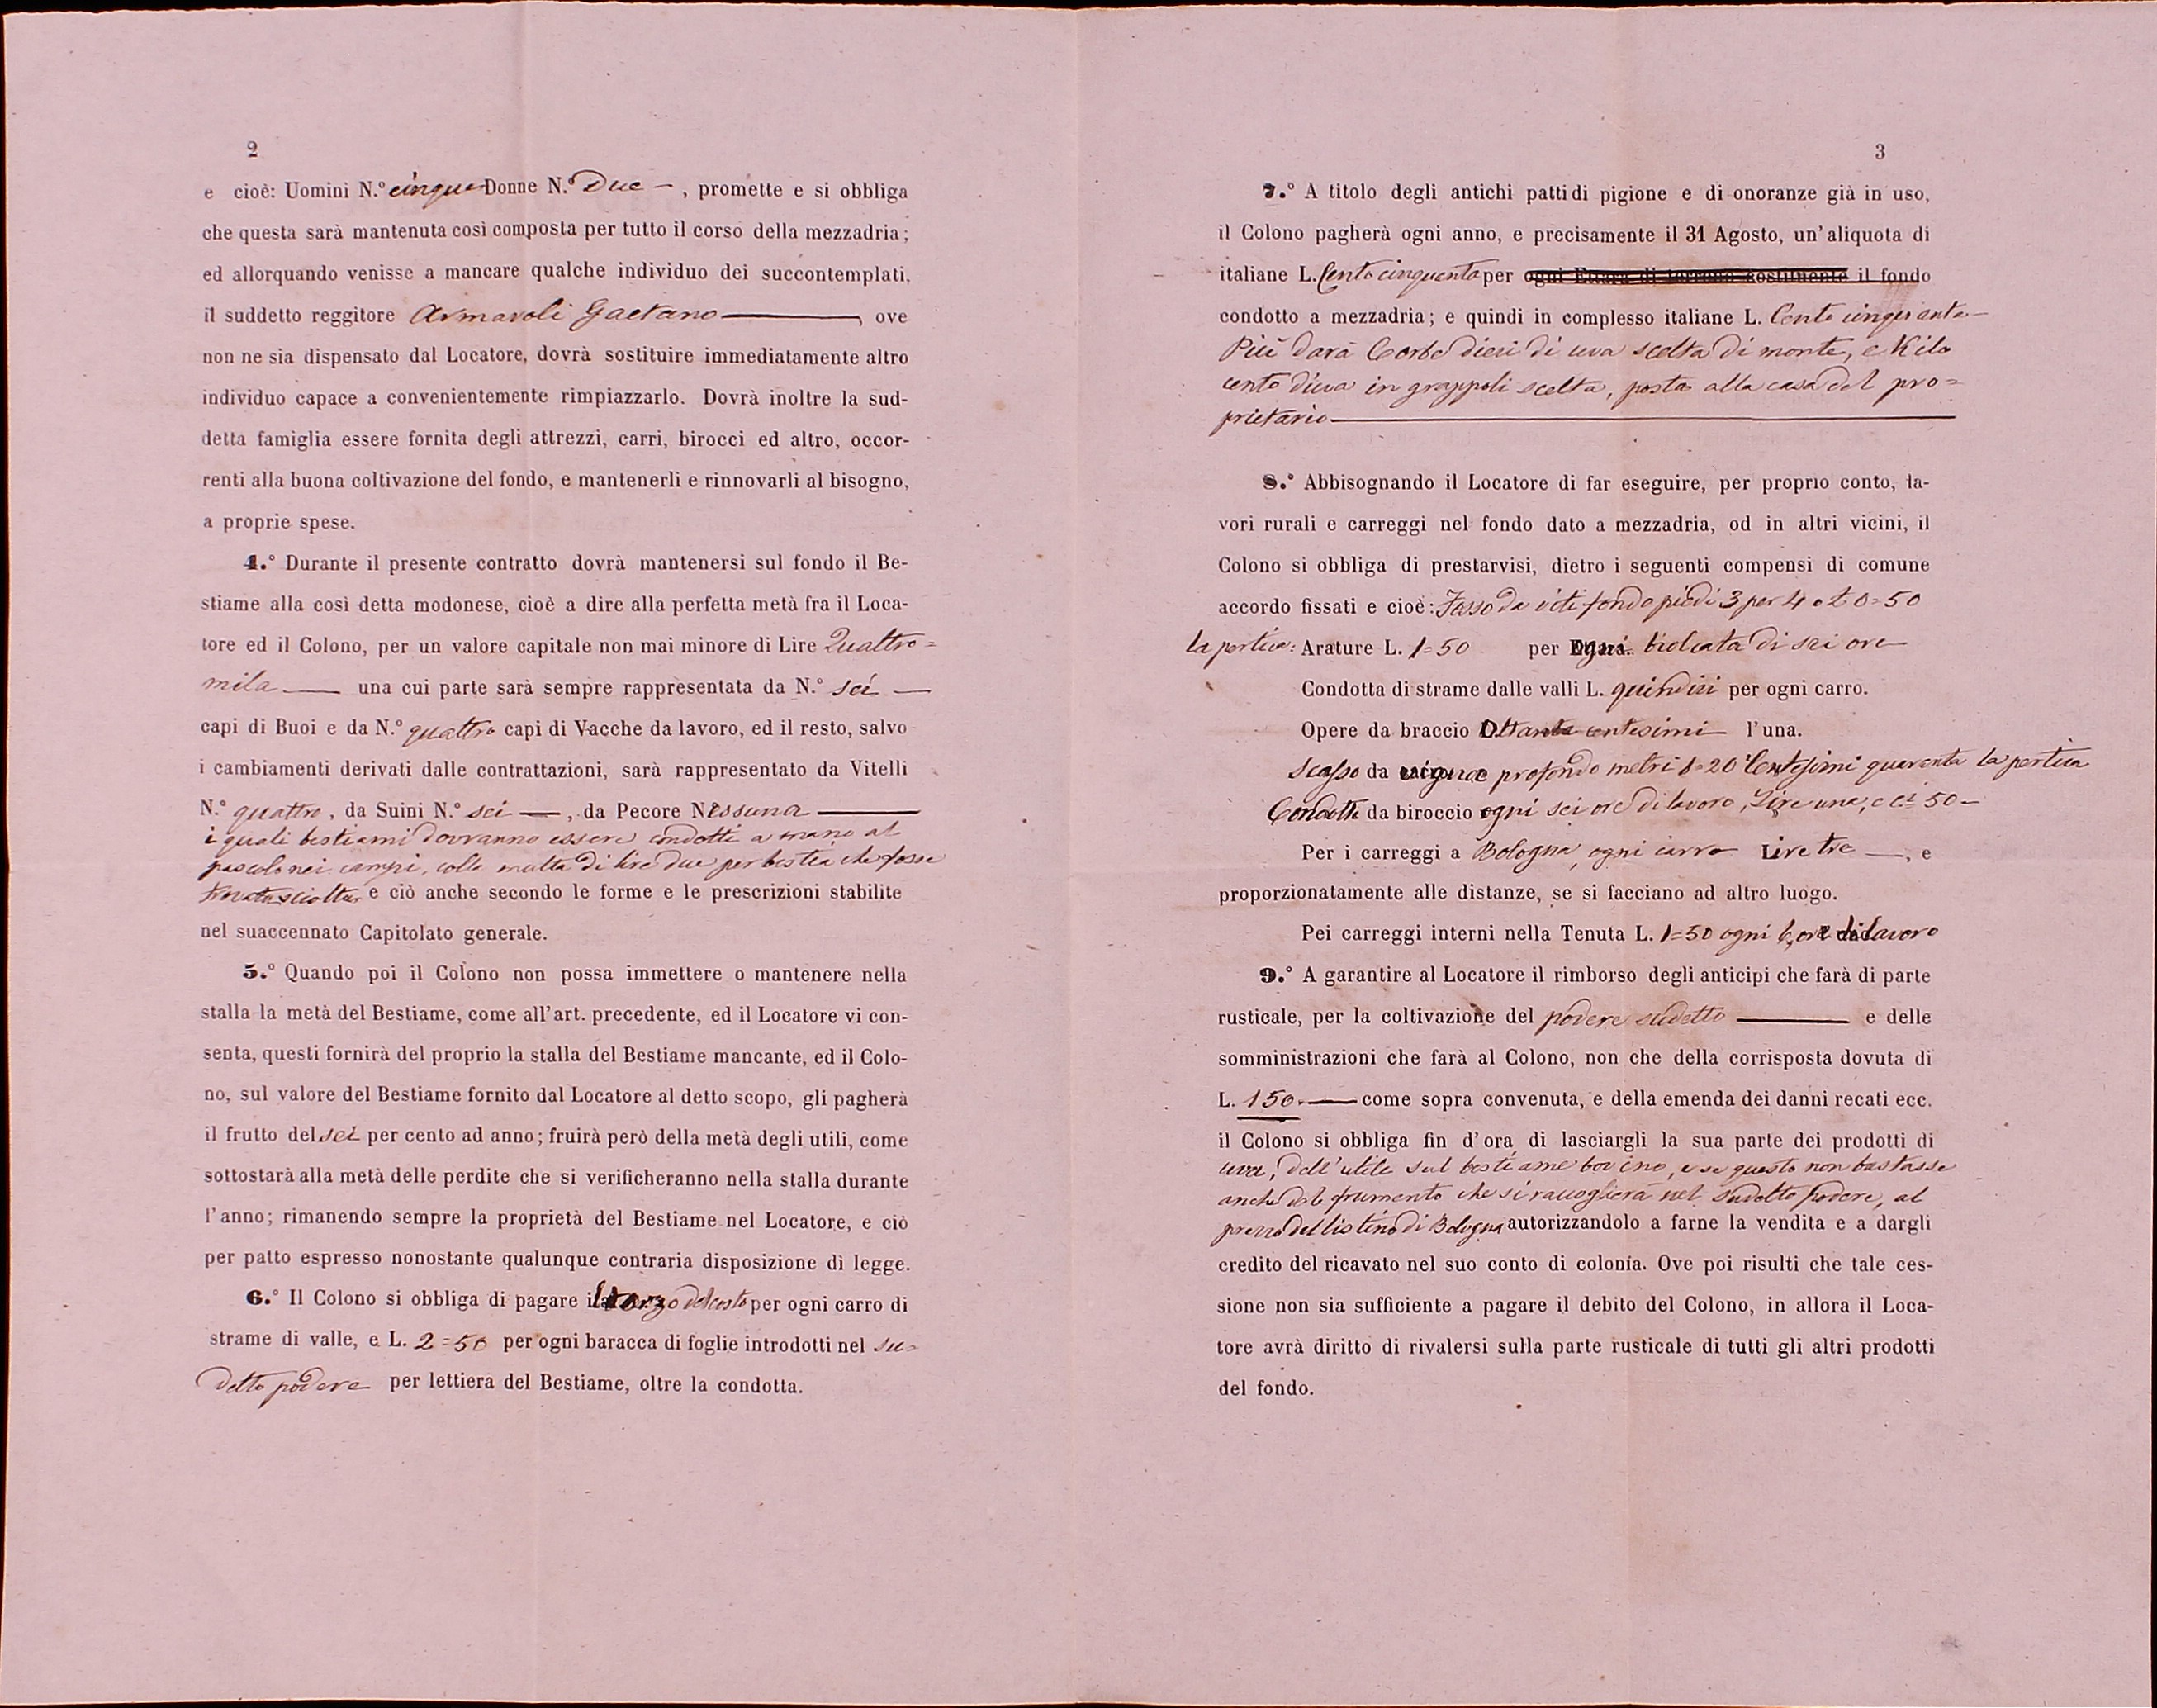 2
e cioè: Uomini N.º cinque Donne N.º Due — , promette e si obbliga
che questa sarà mantenuta così composta per tutto il corso della mezzadria;
ed allorquando venisse a mancare qualche individuo dei succontemplati,
il suddetto reggitore Armaroli Gaetano ———, ove
non ne sia dispensato dal Locatore, dovrà sostituire immediatamente altro
individuo capace a convenientemente rimpiazzarlo. Dovrà inoltre la sud-
detta famiglia essere fornita degli attrezzi, carri, birocci ed altro, occor-
renti alla buona coltivazione del fondo, e mantenerli e rinnovarli al bisogno,
a proprie spese.
4.º Durante il presente contratto dovrà mantenersi sul fondo il Be-
stiame alla così detta modonese, cioè a dire alla perfetta metà fra il Loca-
tore ed il Colono, per un valore capitale non mai minore di Lire Quattro=
mila — una cui parte sarà sempre rappresentata da N.º sei —
capi di Buoi e da N.º quattro capi di Vacche da lavoro, ed il resto, salvo
i cambiamenti derivati dalle contrattazioni, sarà rappresentato da Vitelli
N.º quattro, da Suini N.º sei —, da Pecore Nessuna ———
i quali bestiami dovranno essere condotti a mano al
pascolo nei campi, colla multa di lire due per bestia che fosse
trovata sciolta, e ciò anche secondo le forme e le prescrizioni stabilite
nel suaccennato Capitolato generale.
5.º Quando poi il Colono non possa immettere o mantenere nella
stalla la metà del Bestiame, come all'art. precedente, ed il Locatore vi con-
senta, questi fornirà del proprio la stalla del Bestiame mancante, ed il Colo-
no, sul valore del Bestiame fornito dal Locatore al detto scopo, gli pagherà
il frutto del sei per cento ad anno; fruirà però della metà degli utili, come
sottostarà alla metà delle perdite che si verificheranno nella stalla durante
l'anno; rimanendo sempre la proprietà del Bestiame nel Locatore, e ciò
per patto espresso nonostante qualunque contraria disposizione di legge.
6.º Il Colono si obbliga di pagare il terzo del costo per ogni carro di
strame di valle, e L. 2=50 per ogni baracca di foglie introdotti nel su=
detto podere per lettiera del Bestiame, oltre la condotta.
3
7.º A titolo degli antichi patti di pigione e di onoranze già in uso,
il Colono pagherà ogni anno, e precisamente il 31 Agosto, un'aliquota di
italiane L. Cento cinquanta per ogni Ettara di terreno costituente il fondo
condotto a mezzadria; e quindi in complesso italiane L. Cento cinquanta—
Più darà Corbe dieci di uva scelta di monte, e Kilo
cento d'uva in grappoli scelta, posta alla casa del pro=
prietario ———
8.º Abbisognando il Locatore di far eseguire, per proprio conto, la-
vori rurali e carreggi nel fondo dato a mezzadria, od in altri vicini, il
Colono si obbliga di prestarvisi, dietro i seguenti compensi di comune
accordo fissati e cioè: Fosso da viti fondo piedi 3 per 4 a L 0=50
la pertica: Arature L. 1=50 per ogni biolcata di sei ore
Condotta di strame dalle valli L. quindici per ogni carro.
Opere da braccio Ottanta centesimi l'una.
Scasso da vigna profondo metri 1=20 Centesimi quaranta la pertica
Condotte da biroccio ogni sei ore di lavoro, Lire una, e ci 50—
Per i carreggi a Bologna, ogni carro Lire tre —, e
proporzionatamente alle distanze, se si facciano ad altro luogo.
Pei carreggi interni nella Tenuta L. 1=50 ogni 6 ore di lavoro
9.º A garantire al Locatore il rimborso degli anticipi che farà di parte
rusticale, per la coltivazione del podere sudetto ——— e delle
somministrazioni che farà al Colono, non che della corrisposta dovuta di
L. 150.— come sopra convenuta, e della emenda dei danni recati ecc.
il Colono si obbliga fin d'ora di lasciargli la sua parte dei prodotti di
uva, dell'utile sul bestiame bovino, e se questo non bastasse
anche del frumento che si raccoglierà nel sudetto podere, al
prezzo del listino di Bologna autorizzandolo a farne la vendita e a dargli
credito del ricavato nel suo conto di colonía. Ove poi risulti che tale ces-
sione non sia sufficiente a pagare il debito del Colono, in allora il Loca-
tore avrà diritto di rivalersi sulla parte rusticale di tutti gli altri prodotti
del fondo.